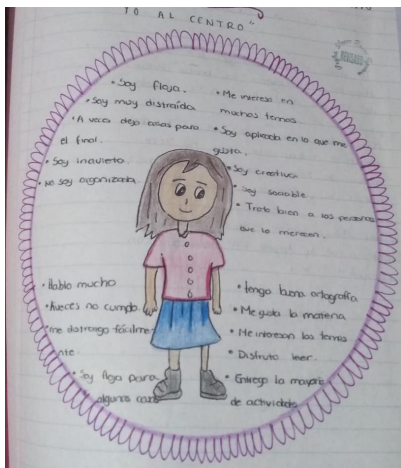 YO AL CENTRO"
REVISADO
• Soy floja.
• Soy muy distraída
• A veces dejo cosas para
el final.
• Soy inquieta.
• No soy organizada.
• Me intereso en
muchos temas.
• Soy aplicada en lo que me
gusta.
• Soy creativa
• Soy sociable.
• Trato bien a las personas
que lo merecen.
• Hablo mucho
• Aveces no cumplo.
• me distraigo fácilme
nte.
• Soy floja para
algunas cosas
• tengo buena ortografía
• Me gusta la materia
• Me interesan los temas
• Disfruto leer.
• Entrego la mayoría
de actividades